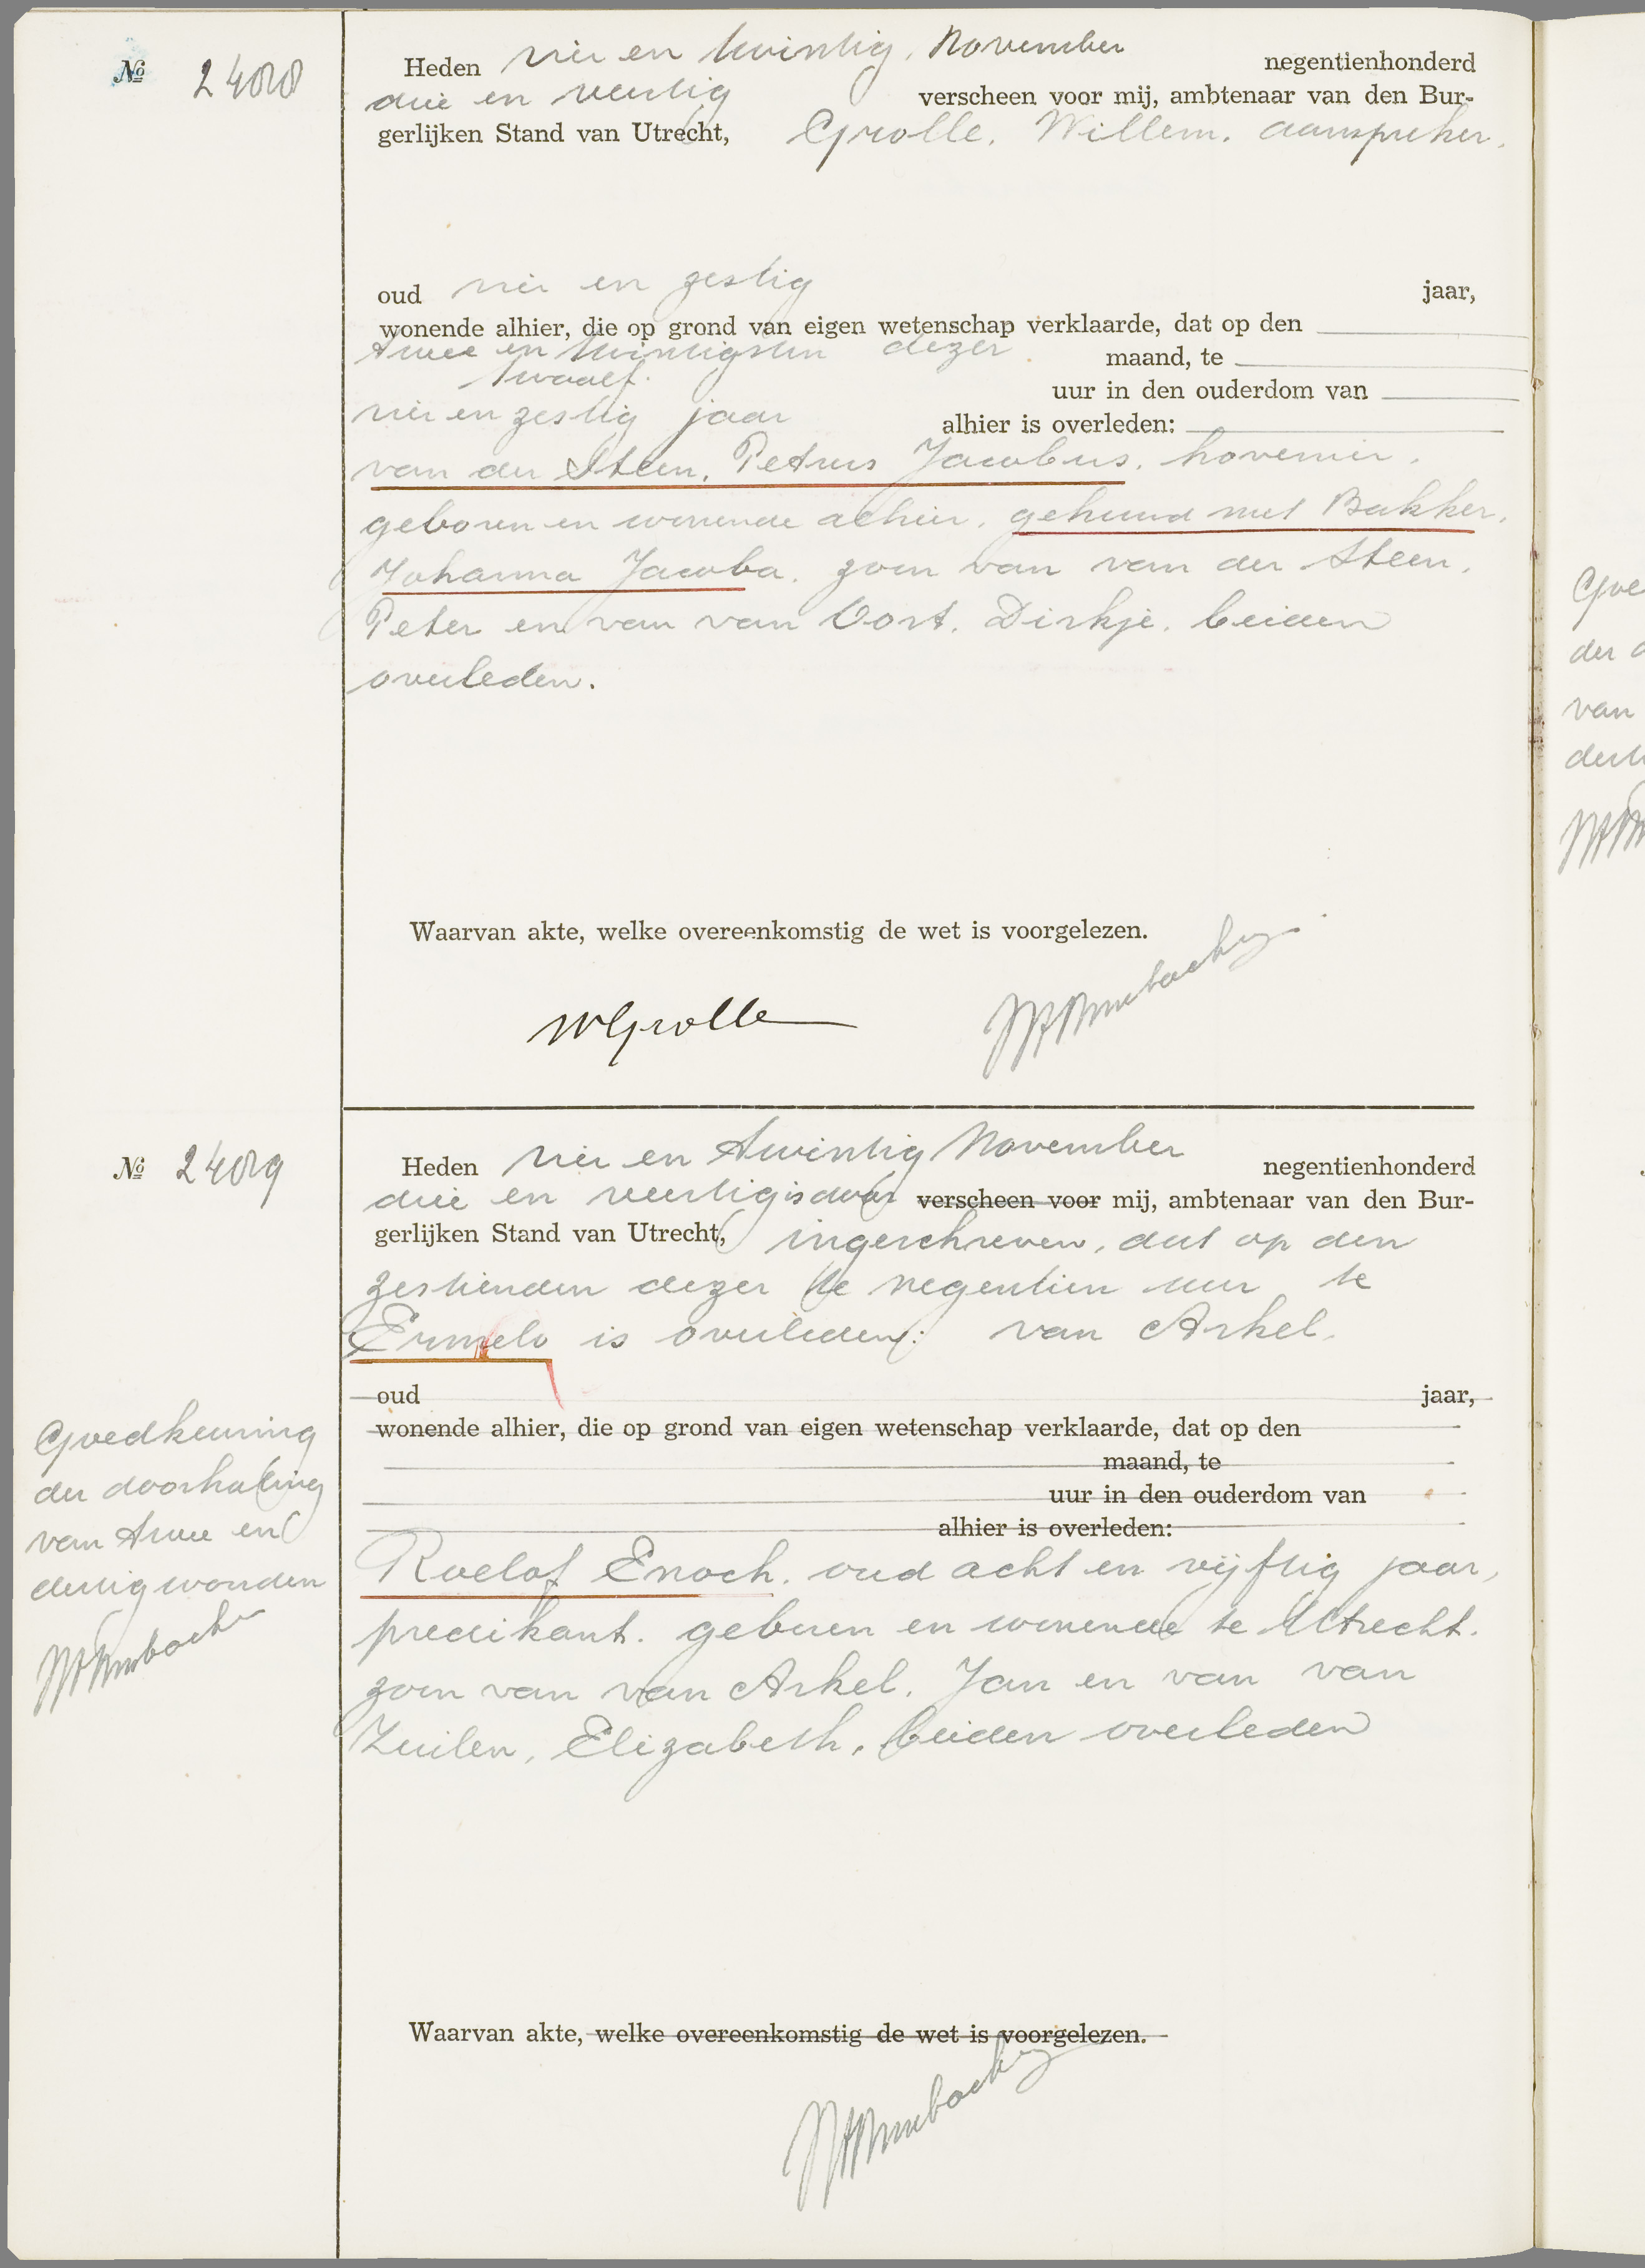 № 2408
Heden vier en twintig, November negentienhonderd
drie en veertig verscheen voor mij, ambtenaar van den Bur-
gerlijken Stand van Utrecht, Grolle, Willem, aanspreker,
oud vier en zestig jaar,
wonende alhier, die op grond van eigen wetenschap verklaarde, dat op den
twee en twintigsten dezer maand, te
twaalf uur in den ouderdom van
vier en zestig jaar alhier is overleden:
van der Steen, Petrus Jacobus, hovenier,
geboren en wonende alhier, gehuwd met Bakker,
Johanna Jacoba, zoon van van der Steen,
Peter en van van Oort, Dirkje, beiden
overleden.
Waarvan akte, welke overeenkomstig de wet is voorgelezen.
WGrolle
№ 2409
Heden vier en twintig November negentienhonderd
drie en veertig is door verscheen voor mij, ambtenaar van den Bur-
gerlijken Stand van Utrecht, ingeschreven, dat op den
zestienden dezer te negentien uur te
Ermelo is overleden: van Arkel,
oud jaar,
wonende alhier, die op grond van eigen wetenschap verklaarde, dat op den
maand, te
uur in den ouderdom van
alhier is overleden:
Roelof Enoch, oud acht en vijftig jaar,
predikant, geboren en wonende te Utrecht,
zoon van van Arkel, Jan en van van
Zuilen, Elizabeth, beiden overleden
Waarvan akte, welke overeenkomstig de wet is voorgelezen.
Goedkeuring
der doorhaling
van twee en
dertig woorden
Goe
der d
van
derti